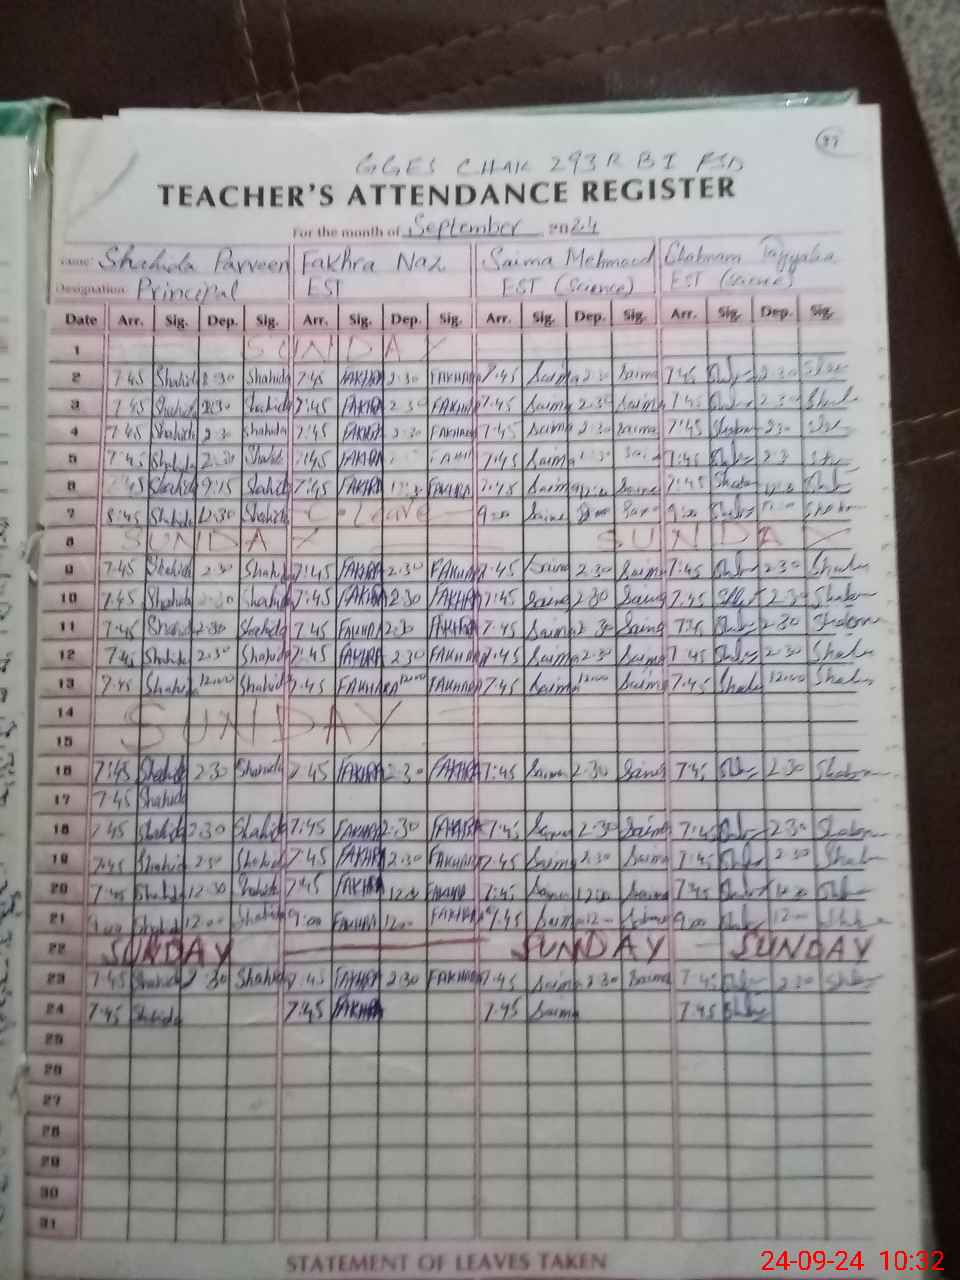 37
GGES CHAK 293 R B I FSD
TEACHER'S ATTENDANCE REGISTER
For the month of September 2024
Name: Shahida Parveen Fakhra Naz Saima Mehmood Shabnam Tayyaba
Designation: Principal EST EST (Science) EST (Science)
Date Arr. Sig. Dep. Sig. Arr. Sig. Dep. Sig. Arr. Sig. Dep. Sig. Arr. Sig. Dep. Sig.
1 SUNDAY
2 7:45 Shahida 2:30 Shahida 7:45 FAKHRA 2:30 FAKHRA 7:45 Saima 2:30 Saima 7:45 2:30
3 7:45 Shahida 2:30 Shahida 7:45 FAKHRA 2:30 FAKHRA 7:45 Saima 2:30 Saima 7:45 2:30
4 7:45 Shahida 2:30 Shahida 7:45 FAKHRA 2:30 FAKHRA 7:45 Saima 2:30 Saima 7:45 Shabnam 2:30
5 7:45 Shahida 2:30 Shahida 7:45 FAKHRA 7:45 Saima 7:45 2:30
6 7:45 Shahida 9:15 Shahida 7:45 FAKHRA 12:30 FAKHRA 7:45 Saima Saima 7:45 12:30
7 8:45 Shahida 12:30 Shahida C-Leave 9:00 Saima 9:00
8 SUNDAY SUNDAY
9 7:45 Shahida 2:30 Shahida 7:45 FAKHRA 2:30 FAKHRA 7:45 Saima 2:30 Saima 7:45 2:30
10 7:45 Shahida 2:30 Shahida 7:45 FAKHRA 2:30 FAKHRA 7:45 Saima 2:30 Saima 7:45 2:30 Shabnam
11 7:45 Shahida 2:30 Shahida 7:45 FAKHRA 2:30 FAKHRA 7:45 Saima 2:30 Saima 7:45 2:30 Shabnam
12 7:45 Shahida 2:30 Shahida 7:45 FAKHRA 2:30 FAKHRA 7:45 Saima 2:30 Saima 7:45 2:30
13 7:45 Shahida 12:00 Shahida 7:45 FAKHRA 12:00 FAKHRA 7:45 Saima 12:00 Saima 7:45 12:00
14 SUNDAY
15
16 7:45 Shahida 2:30 Shahida 7:45 FAKHRA 2:30 FAKHRA 7:45 Saima 2:30 Saima 7:45 2:30 Shabnam
17 7:45 Shahida
18 7:45 Shahida 2:30 Shahida 7:45 FAKHRA 2:30 FAKHRA 7:45 Saima 2:30 Saima 7:45 2:30 Shabnam
19 7:45 Shahida 2:30 Shahida 7:45 FAKHRA 2:30 FAKHRA 7:45 Saima 2:30 Saima 7:45 2:30
20 7:45 Shahida 12:30 Shahida 7:45 FAKHRA 12:00 FAKHRA 7:45 Saima 12:00 Saima 7:45
21 9:00 Shahida 12:00 Shahida 9:00 FAKHRA 12:00 FAKHRA 7:45 Saima 12:00 9:00 12:00
22 SUNDAY SUNDAY SUNDAY
23 7:45 Shahida 2:30 Shahida 7:45 FAKHRA 2:30 FAKHRA 7:45 Saima 2:30 Saima 7:45 2:30
24 7:45 Shahida 7:45 FAKHRA 7:45 Saima 7:45
25
26
27
28
29
30
31
STATEMENT OF LEAVES TAKEN
24-09-24 10:32